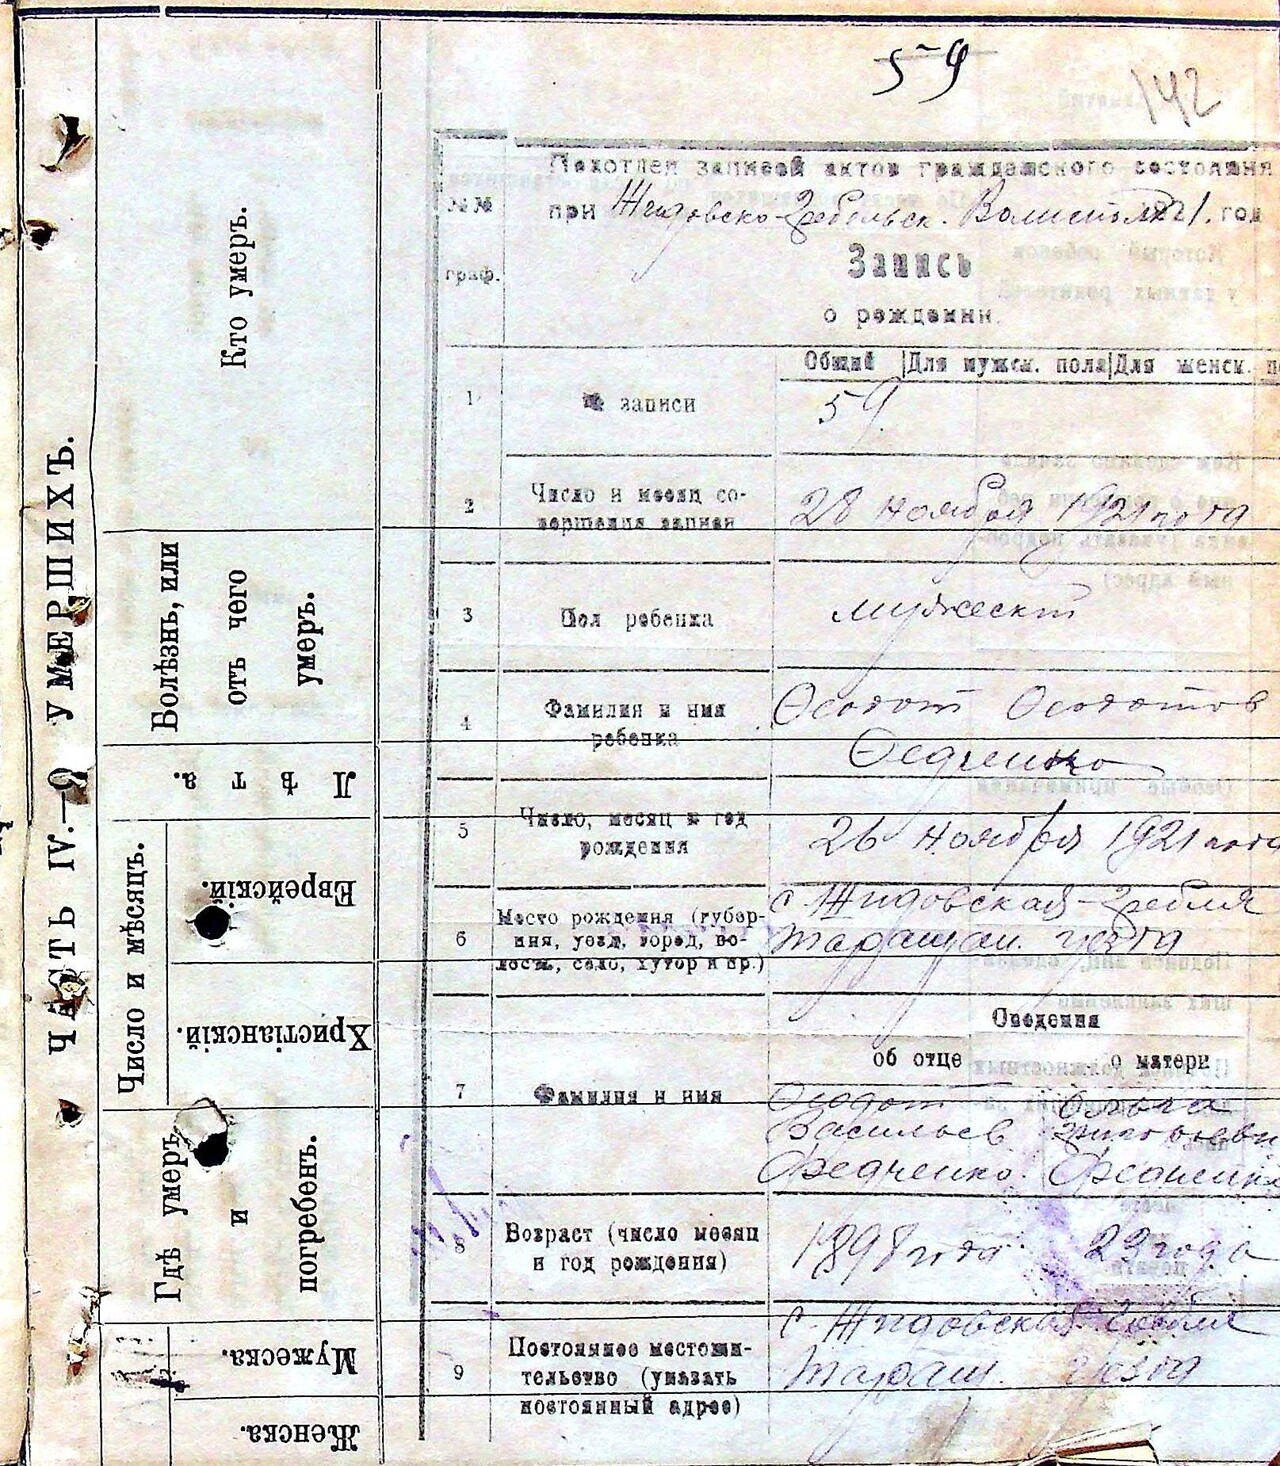 59
142
ЧАСТЬ IV.—О УМЕРШИХЪ.
Кто умеръ.
Болѣзнь, или
отъ чего
умеръ.
Лѣта.
Число и мѣсяцъ.
Еврейскій.
Христіанскій.
Гдѣ умеръ
и
погребенъ.
Мужеска.
Женска.
№№
граф.
Подотдел записей актов гражданского состояния
при Жидовско-Гребельск. Волисполк 1921. год
Запись
о рождении.
Общий Для мужск. пола Для женск.
1 № записи 59
2 Число и месяц со-
вершения записи
28 ноября 1921 года
3 Пол ребенка мужеск
4 Фамилия и имя
ребенка
Ѳеодот Ѳеодотов
Ѳедченко
5 Число, месяц и год
рождения
26 ноября 1921 года
6 Место рождения (губер-
ния, уезд, город, во-
лость, село, хутор и пр.)
с. Жидовская-Гребля
Таращан. уезда
Сведения
об отце о матери
7 Фамилия и имя
Ѳеодот Ольга
Васильев
Ѳедченко
8 Возраст (число месяц
и год рождения)
1898 года 23 года
9 Постоянное местожи-
тельство (указать
постоянный адрес)
с. Жидовская Гребля
Таращ. уезда